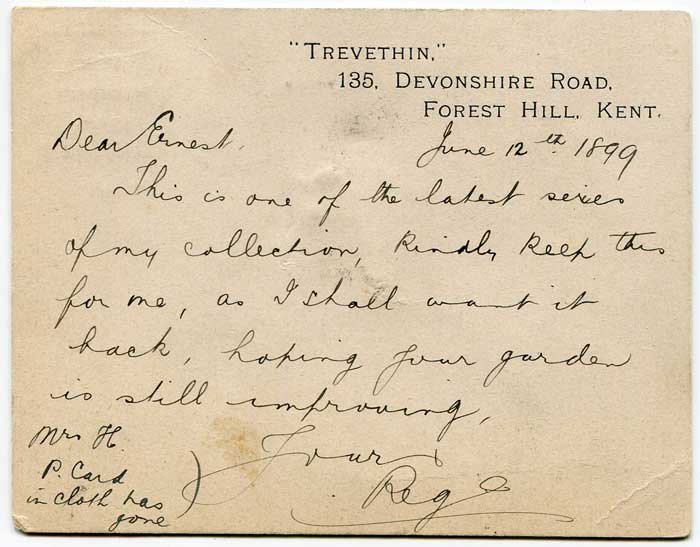 "TREVETHIN,"
135, DEVONSHIRE ROAD,
FOREST HILL, KENT.
Dear Ernest,
June 12th. 1899
This is one of the latest series
of my collection, Kindly Keep this
for me, as I shall want it
back, hoping your garden
is still improving,
Yours
Reg
Mrs H.
P. Card
in cloth has
gone